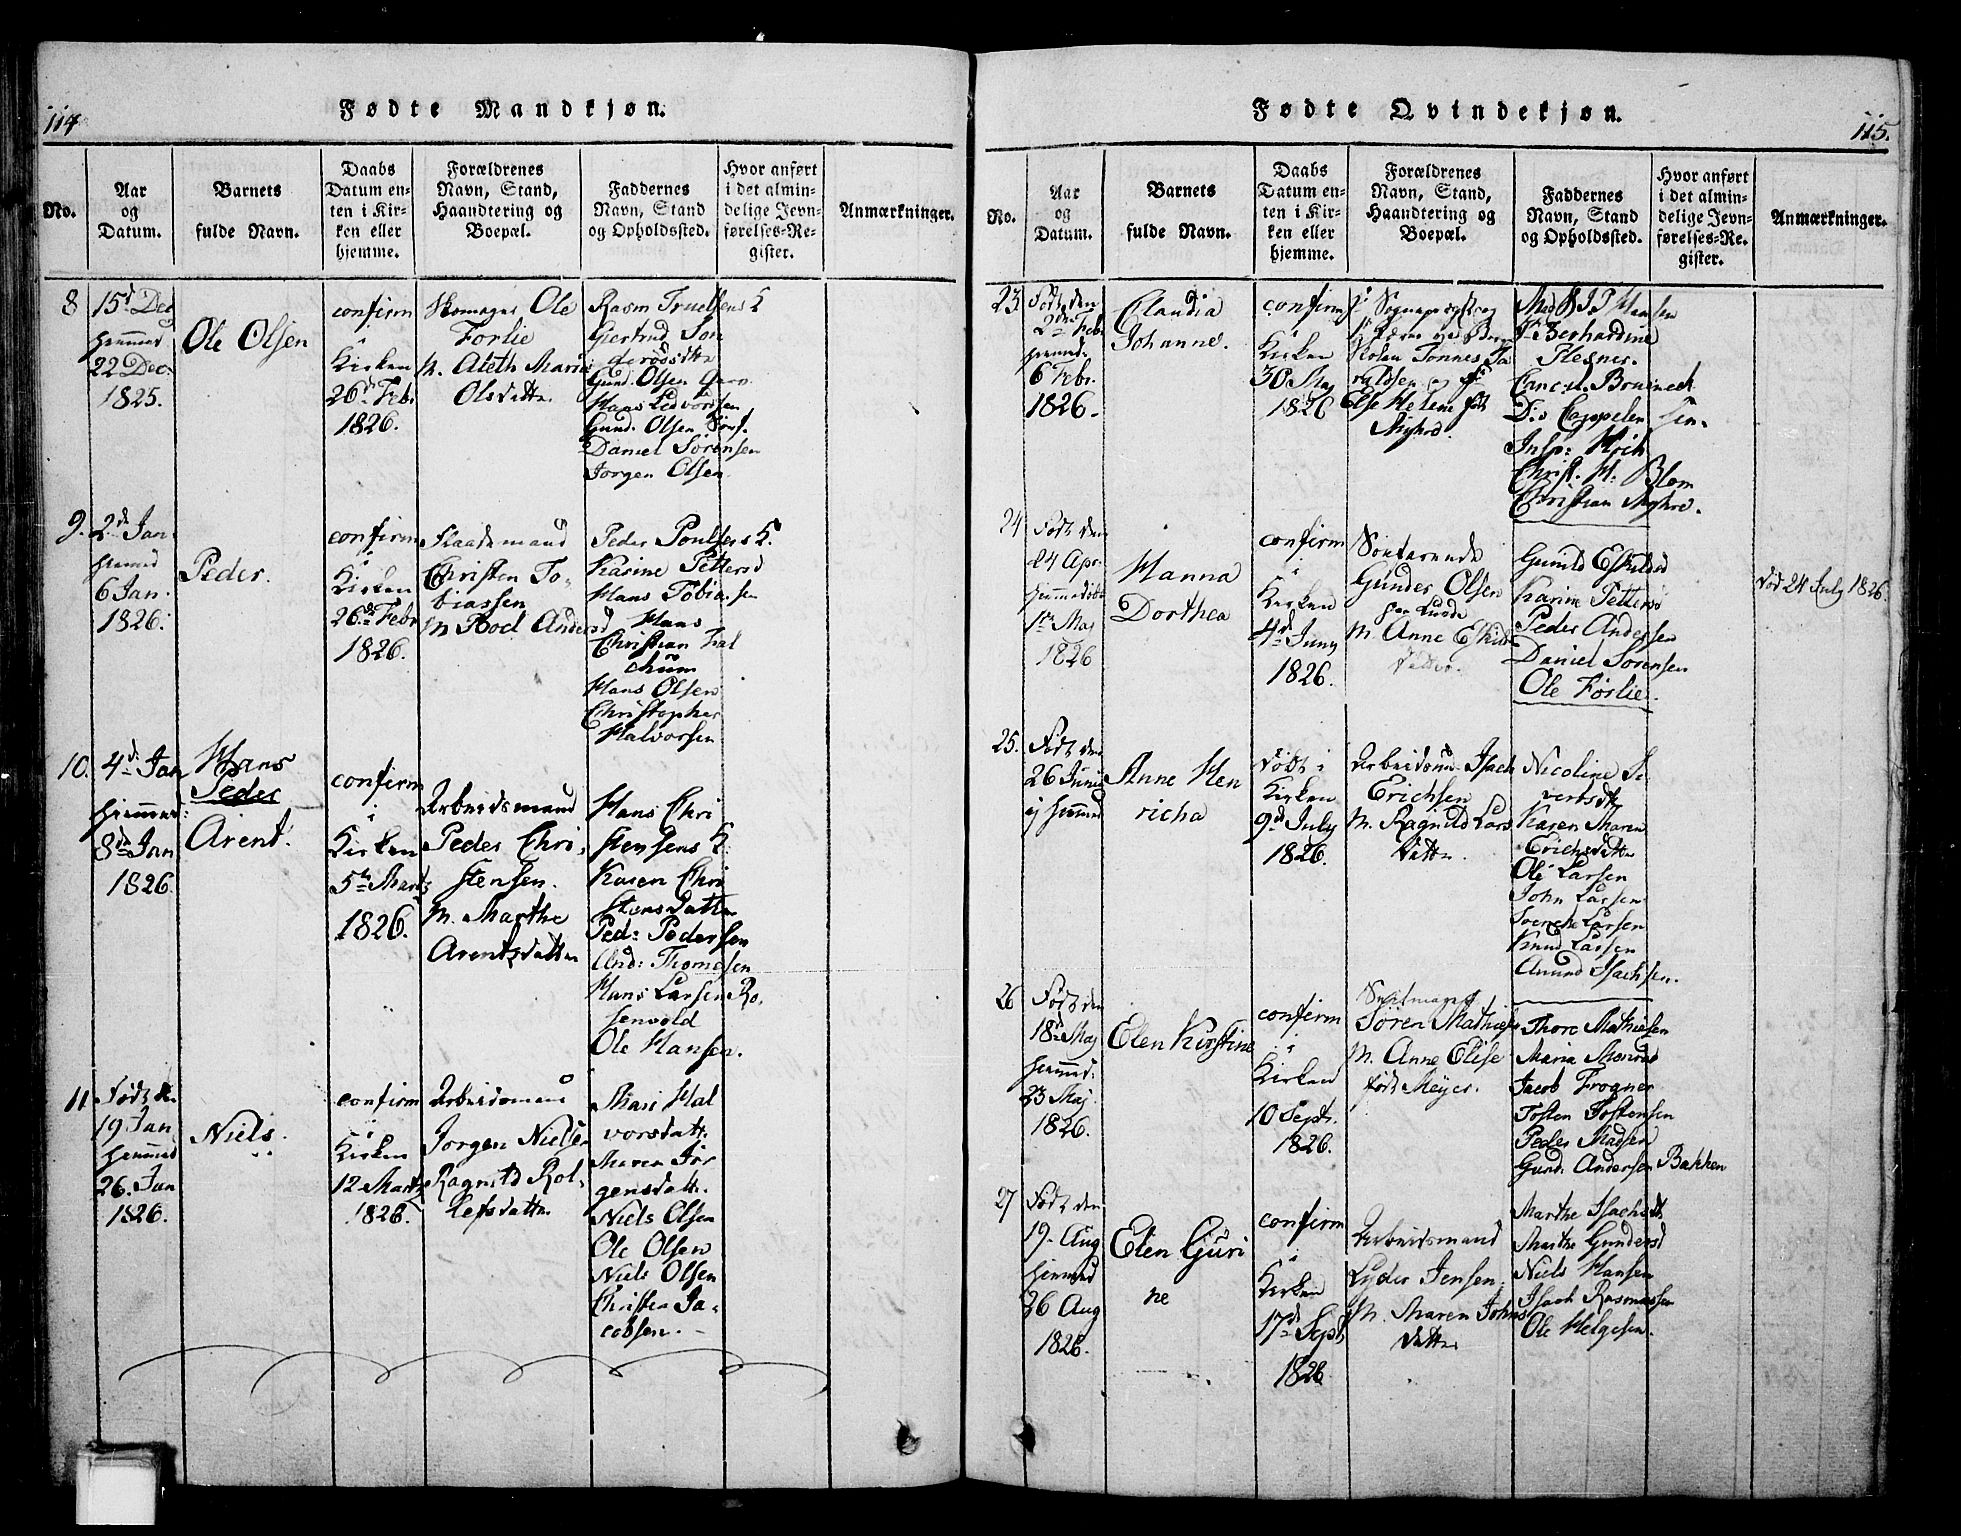 114
Fødte Mandkjøn.
No.
Aar
og
Datum.
Barnets
fulde Navn.
Daabs
Datum en-
ten i Kir-
ken eller
hjemme.
Forældrenes
Navn, Stand,
Haandtering og
Boepæl.
Faddernes
Navn, Stand
og Opholdssted.
Hvor anført
i det almin-
delige Jevn-
førelses-Re-
gister.
Anmærkninger.
8
15d Dec
hiemmed
22 Dec.
1825.
Ole Olsen
confirm
i
Kirken
26d Febr
1826.
Skomager Ole
Forlie
M. Aleth Maria
Olsdatter
Rasm Truelsens K
Giertrud Ton
derøsdtr
Gund. Olsen
Hans Ledvorsen
Gund. Olsen
Daniel Sørensen
Jorgen Olsen
9.
2d Jan.
hiemmed
6 Jan.
1826.
Peder.
confirm
i
Kirken
26de Febr
1826.
Christen To-
biassen
M Boel Andersd
Peder Poulsens K.
Karine Pettersd
Hans Tobiassen
Hans
Christian Hal
Hans Olsen
Christopher
Halvorsen
10.
4d Jan
hiemmed:
8de Jan
1826.
Hans
Peder
Arent.
confirm
i
Kirken
5te Martz
1826.
Arbeidsmand
Peder Chri,
stensen.
M. Marthe
Arentsdatter
Hans Chri
stensens K.
Karen Chri
stensdatter
Ped: Pedersen
And: Thomesen
Hans Larsen Ro,
senvold
Ole Hansen.
11
Født den
19 Jan
hiemmed
26. Jan
1826.
Niels.
confirm
i
Kirken
12 Martz
1826.
Arbeidsmand
Jorgen Nielsen
Ragnild Rol-
lefsdatter
Mari Hal
vorsdatt.
Maren Jør
gensdatt.
Niels Olsen
Ole Olsen
Niels Olsen
Christen Ja-
cobsen.
115.
Fødte Qvindekjøn.
No.
Aar
og
Datum.
Barnets
fulde Navn.
Daabs
Datum en-
ten i Kir-
ken eller
hjemme.
Forældrenes
Navn, Stand,
Haandtering og
Boepæl.
Faddernes
Navn, Stand
og Opholdssted.
Hvor anført
i det almin-
delige Jevn-
førelses-Re-
gister.
Anmærkninger.
23
Født den
2den Feb.
hiemd.
6 Febr.
1826.
Claudia
Johanne.
confirm
i
Kirken
30 May
1826
Skolen Tønnes Ja
Else Helene født
Myhre.
Mad S I P Hansen
Fr Berhardine
Flesner.
Canc. v. Bruineck
D:s Cappelen Sen.
Insp: Koch
Christ. H. Blom
Christian Myhre.
24
Født den
24 Apr.
hiemmedøbt
1ste May
1826
Hanna
Dorthea
confirm
i
Kirken
4de Juny
1826.
Gunder Olsen
M. Anne Eskilds
datter.
Gunild Eskildsd
Karine Pettersd
Peder Andersen
Daniel Sørensen
Ole Førlie.
død 24 July 1826.
25.
Født den
26 Junii
ej hiemmed
Anne Hen
richa
Døbt i
Kirken
9de July
1826.
Arbeidsmd. Isach
Erichsen
M. Ragnild Lars
datter.
Nicoline Si
vertsdtr
Karen Maren
Erichsdatter
Ole Larsen
John Larsen
Sverche Larsen
Knud Larsen
Amund Isachsen.
26
Født den
18de May
hiemmed:
23 Maj.
1826.
Elen Kirstine
confirm
i
Kirken
10 Septr.
1826.
Søren Mathiesen
M. Anne Elise
født Meyer.
Thore Mathiesen
Maria Monrad
Jacob Frogner
Tosten Tostensen
Peder Madsen
Gund. Andersen Bakken
27
Født den
19. Aug
hiemmed
26 Aug
1826.
Elen Guri
ne
confirm
i
Kirken
17de Sept
1826
Arbeidsmand
Lyder Jensen.
M. Maren Johns
datter
Marthe Isachsdt.
Marthe Gundersd
Niels Hansen
Isach Rasmussen
Ole Helgesen.